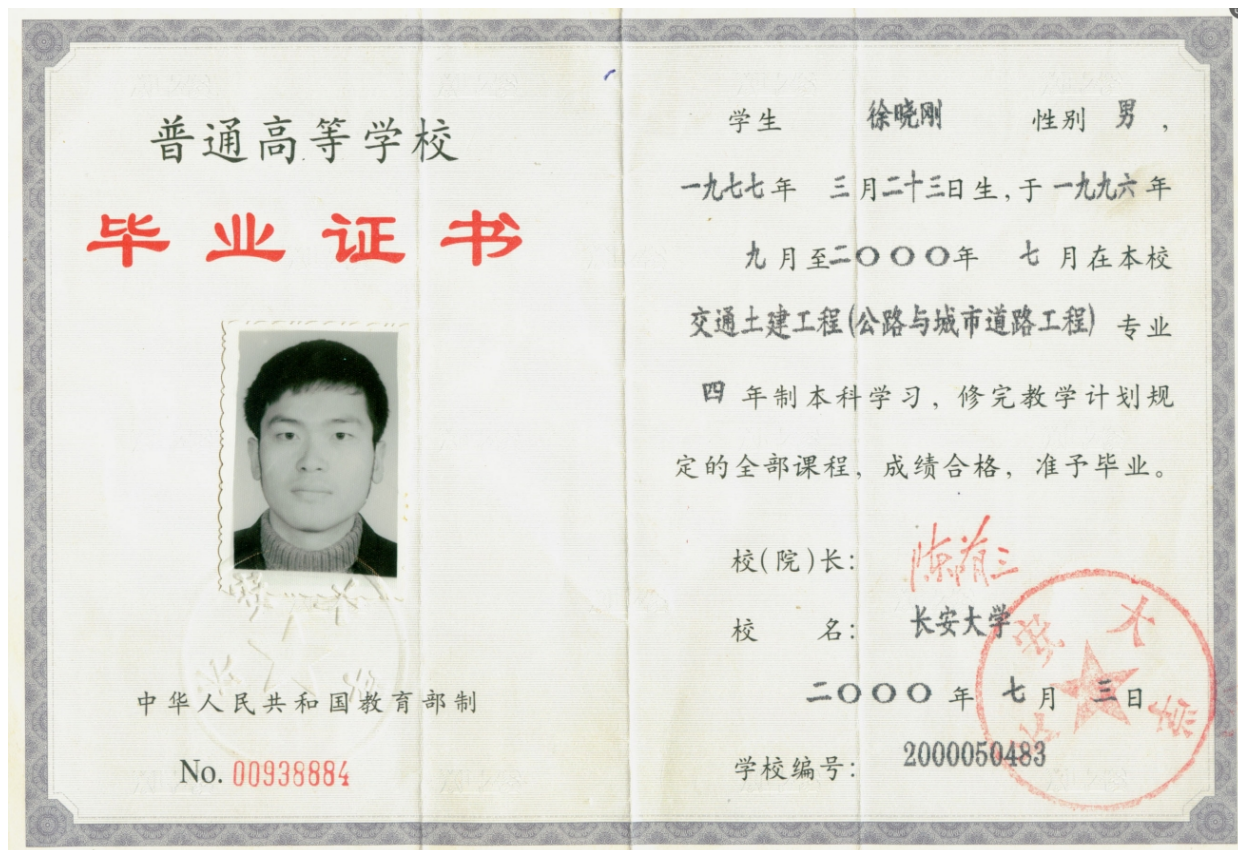 普通高等学校
毕业证书
中华人民共和国教育部制
No. 00938884
学生 徐晓刚 性别 男，
一九七七年 三月二十三日生，于一九九六年
九月至二〇〇〇年 七月在本校
交通土建工程(公路与城市道路工程) 专业
四年制本科学习，修完教学计划规
定的全部课程，成绩合格，准予毕业。
校(院)长：
校 名： 长安大学
二〇〇〇年 七月 三日
学校编号： 2000050483
长安大学